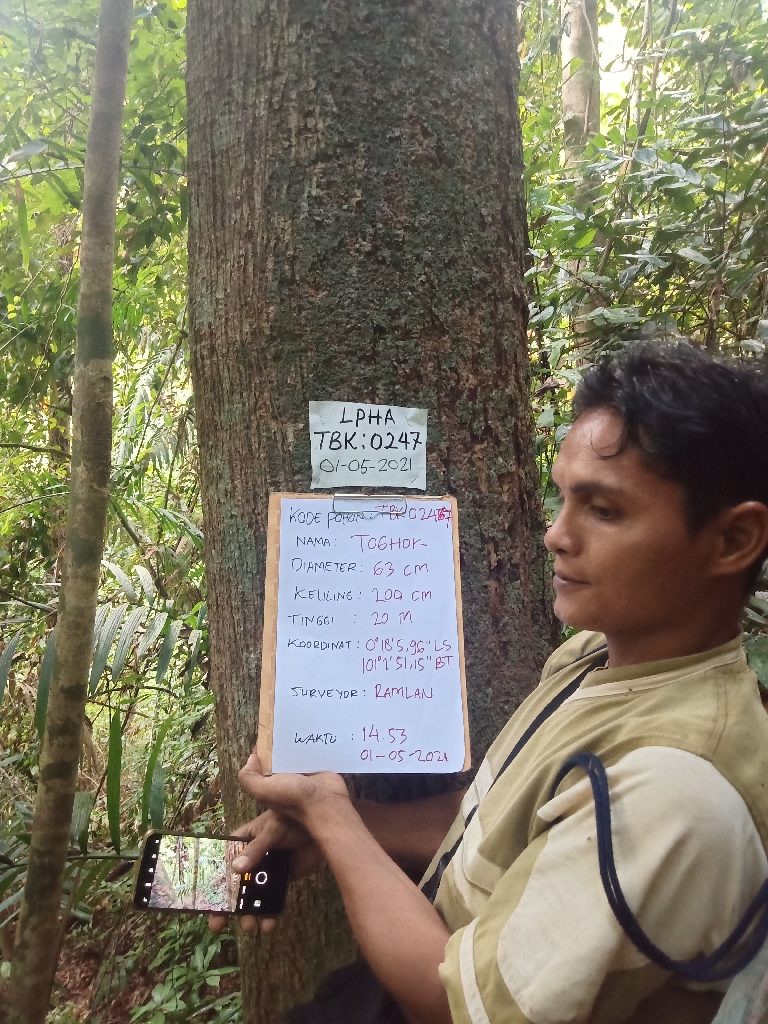 LPHA
TBK:0247
01-05-2021
KODE POHON: TBK0247
NAMA: TOGHOR
DIAMETER: 63 CM
KELILING: 200 CM
TINGGI : 20 M
KOORDINAT: 0°18'5,96" LS
101°1'51,15" BT
SURVEYOR: RAMLAN
WAKTU : 14.53
01-05-2021